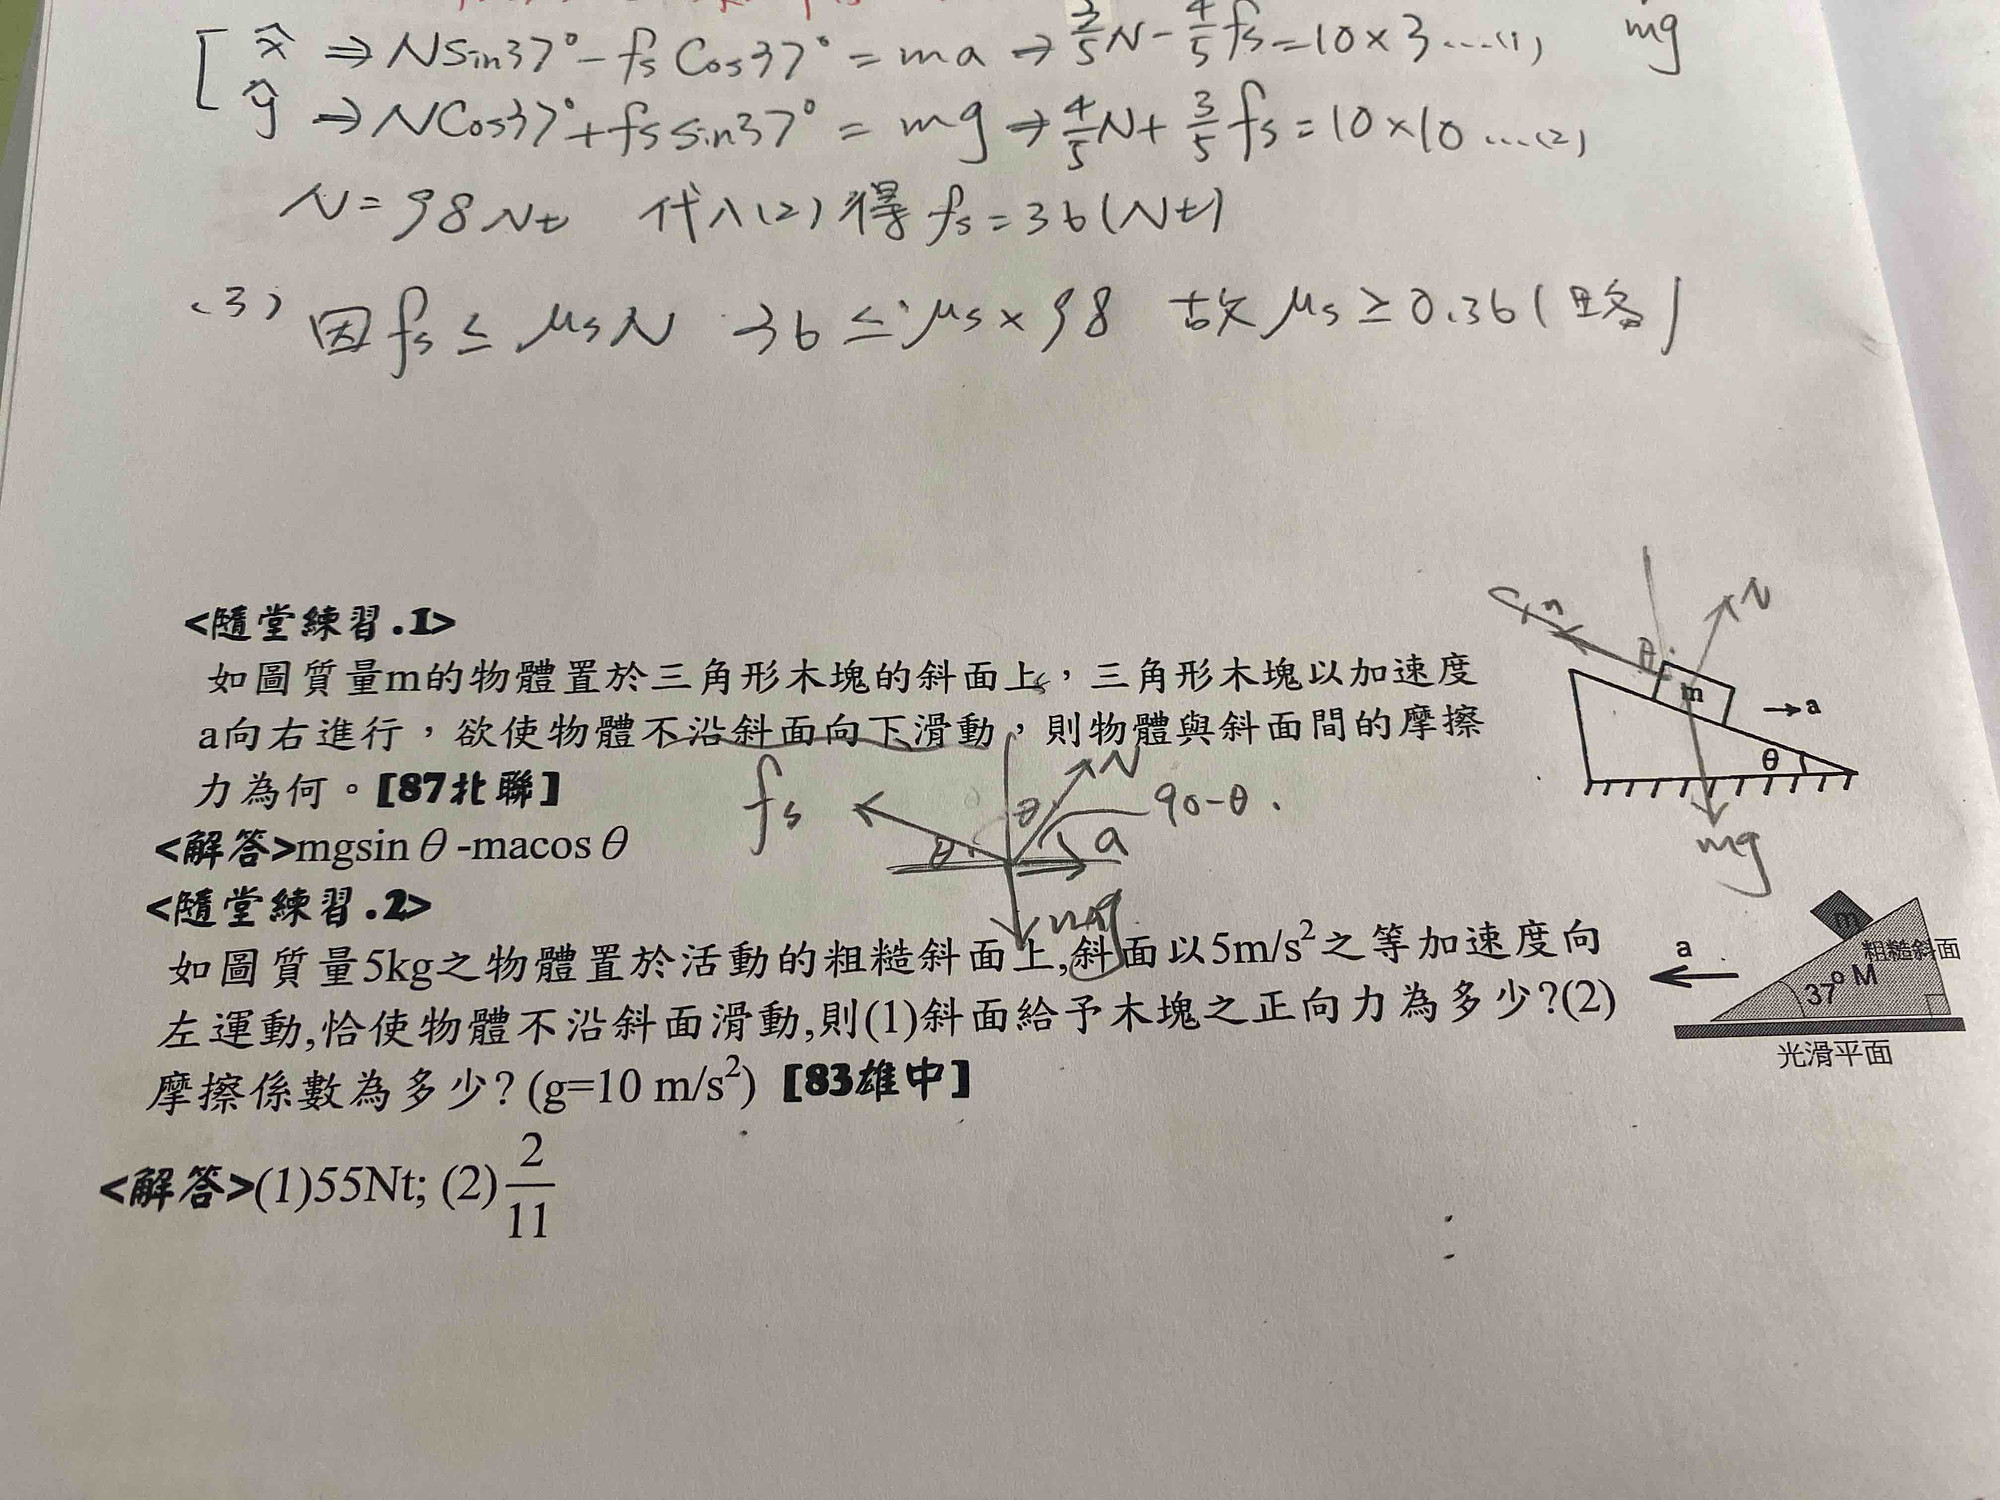 x̂ ⇒ N sin37° - fs cos37° = ma ⇒ 3/5 N - 4/5 fs = 10 × 3 ....(1)
mg
ŷ ⇒ N cos37° + fs sin37° = mg ⇒ 4/5 N + 3/5 fs = 10 × 10 ....(2)
N = 98 Nt 代入(2)得 fs = 36 (Nt)
(3) 因 fs ≤ μs N 36 ≤ μs × 98 故 μs ≥ 0.36 (略)
<隨堂練習.1>
如圖質量m的物體置於三角形木塊的斜面上，三角形木塊以加速度
a向右進行，欲使物體不沿斜面向下滑動，則物體與斜面間的摩擦
力為何。[87北聯]
N
θ
m
→a
θ
mg
fs
N
θ
90-θ
θ
a
mg
<解答>mgsinθ-macosθ
<隨堂練習.2>
如圖質量5kg之物體置於活動的粗糙斜面上,斜面以5m/s²之等加速度向
左運動,恰使物體不沿斜面滑動,則(1)斜面給予木塊之正向力為多少?(2)
摩擦係數為多少? (g=10 m/s²) [83雄中]
m
a
粗糙斜面
37° M
光滑平面
<解答>(1)55Nt; (2) 2/11